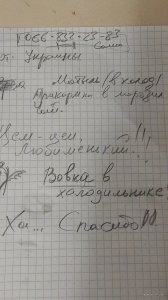 066-833-23-83
Саша
от. Украины
Мотыль (в холод)
Прикормка в морозил
Цем-цем,
Любименький!!!
Вовка в
холодильнике
Хи... Спасибо!!